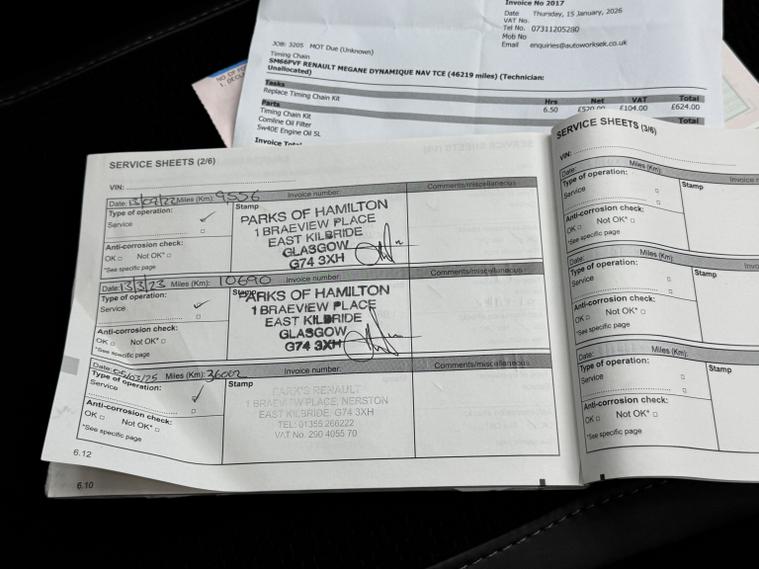 Invoice No 2017
Date Thursday, 15 January, 2026
VAT No.
Tel No. 07311205280
Mob No
Email enquiries@autoworksek.co.uk
JOB: 3205 MOT Due (Unknown)
Timing Chain
SM66PVF RENAULT MEGANE DYNAMIQUE NAV TCE (46219 miles) (Technician:
Unallocated)
Tasks Hrs Net VAT Total
Replace Timing Chain Kit 6.50 £520.00 £104.00 £624.00
Parts Total
Timing Chain Kit
Comline Oil Filter
5w40E Engine Oil 5L
Invoice Total
SERVICE SHEETS (2/6)
VIN:
Date: Miles (Km): 9556 Invoice number: Comments/miscellaneous
Type of operation: Stamp
Service
Anti-corrosion check:
OK Not OK*
*See specific page
PARKS OF HAMILTON
1 BRAEVIEW PLACE
EAST KILBRIDE
GLASGOW
G74 3XH
Date: 13/3/23 Miles (Km): 10690 Invoice number: Comments/miscellaneous
Type of operation: Stamp
Service
Anti-corrosion check:
OK Not OK*
*See specific page
PARKS OF HAMILTON
1 BRAEVIEW PLACE
EAST KILBRIDE
GLASGOW
G74 3XH
Date: 05/03/25 Miles (Km): 36002 Invoice number: Comments/miscellaneous
Type of operation: Stamp
Service
Anti-corrosion check:
OK Not OK*
*See specific page
PARK'S RENAULT
1 BRAEVIEW PLACE, NERSTON
EAST KILBRIDE, G74 3XH
TEL: 01355 266222
VAT No. 290 4055 70
6.12
6.10
SERVICE SHEETS (3/6)
VIN:
Date: Miles (Km): Invoice n
Type of operation: Stamp
Service
Anti-corrosion check:
OK Not OK*
*See specific page
Date: Miles (Km): Invo
Type of operation: Stamp
Service
Anti-corrosion check:
OK Not OK*
*See specific page
Date: Miles (Km):
Type of operation: Stamp
Service
Anti-corrosion check:
OK Not OK*
*See specific page